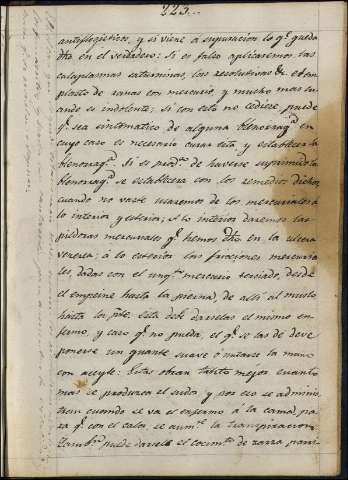 223...
antiflogisticos, y si viene á supuracion lo q.e queda
dho en el verdadero: Si es falso aplicaremos las
cataplasmas saturninas, las resolutivas &c. el em
plasto de ranas con mercurio, y mucho mas cu
ando es indolente; Si con esto no cediere, puede
q.e sea sintomatico de alguna blenorrag.a en
cuyo caso es necesario curar esta, y establecer la
blenorrag.a Si es prod.do de haverse suprimido la
blenorrag.a se establecerá con los remedios dichos,
cuando no vaste usaremos de los mercuriales á
lo interior y exterior; A lo interior daremos las
pildoras mercuriales q.e hemos dho en la ulcera
venerea; á lo exterior las fricciones mercuria
les, dadas con el ung.to mercurio terciado, desde
el empeine hasta la pierna, de alli al muslo
hasta la p.te. esta debe darselas el mismo en
fermo, y caso q.e no pueda, el q.e se las dé deve
ponerse un guante suave ó untarse la mano
con aceyte: Estas obran tanto mejor cuanto
mas se produzca el sudor y por eso se adminis
tran cuando se va el enfermo á la cama, pa
ra q.e con el calor se aum.te la transpiracion.
Tamb.n puede darsele el cocim.to de zarza parri